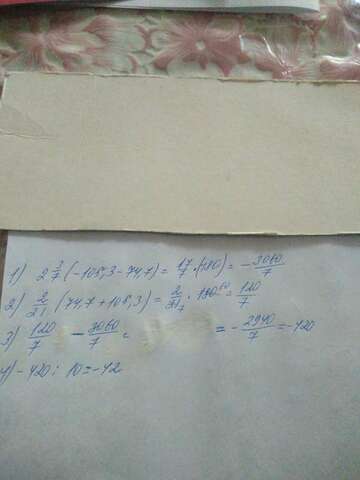 1) 2 3/7 (-105,3-74,7) = 17/7 · (-180) = - 3060/7
2) 2/21 · (74,7+105,3) = 2/21 7 · 180 60 = 120/7
3) 120/7 - 3060/7 = - 2940/7 = -420
4) -420 : 10 = -42